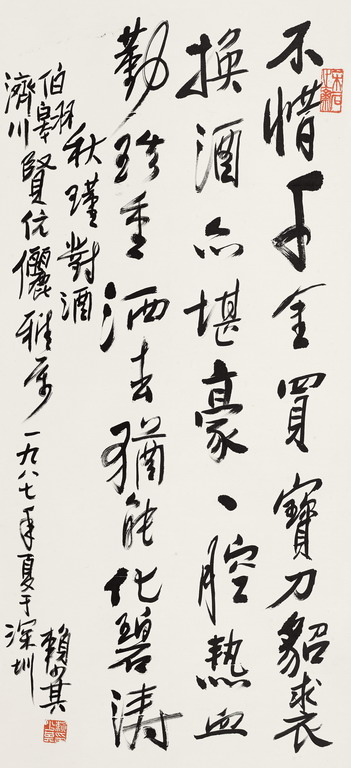 不惜千金買寶刀貂裘
換酒亦堪豪一腔熱血
勤珍重洒去猶能化碧濤
秋瑾對酒
伯翱
濟川賢伉儷雅屬一九八七年夏于深圳
賴少其